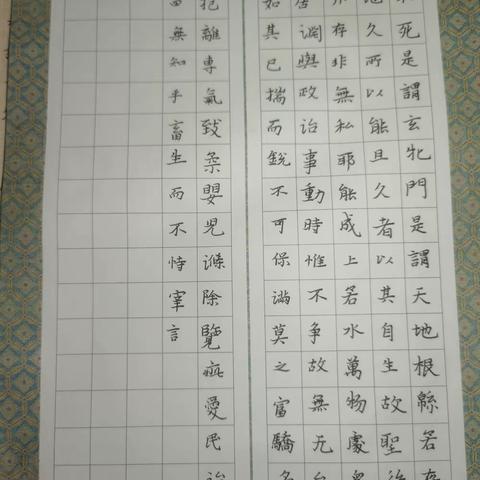 死是謂玄牝門是謂天地根綿若存
地久所以能且久者以其自生故聖
存非無私耶能成上若水萬物處
居淵與政治事動時惟不争故無尤
如其已揣而銳不可保滿莫之富驕
抱離專氣致柔嬰兒滌除覽疵愛民治
無知乎畜生而不恃宰言